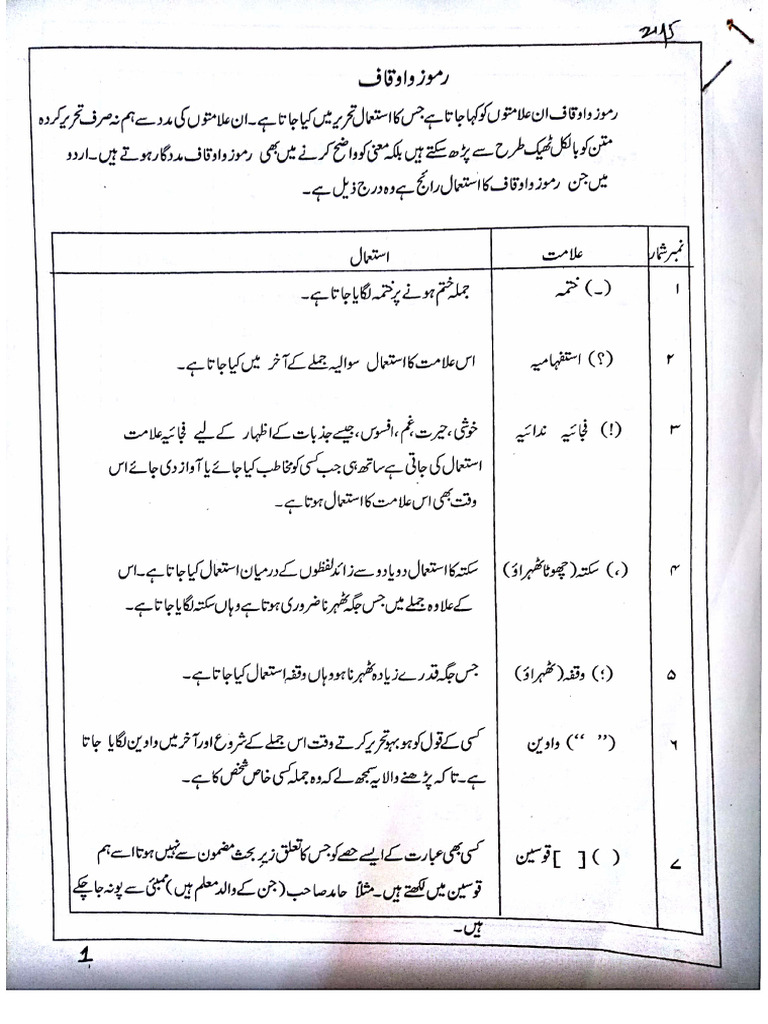 رموز و اوقاف
رموز و اوقاف ان علامتوں کو کہا جاتا ہے جس کا استعمال تحریر میں کیا جاتا ہے۔ ان علامتوں کی مدد سے ہم نہ صرف تحریر کردہ
متن کو بالکل ٹھیک طرح سے پڑھ سکتے ہیں بلکہ معنی کو واضح کرنے میں بھی رموز و اوقاف مددگار ہوتے ہیں۔ اردو
میں جن رموز و اوقاف کا استعمال رائج ہے وہ درج ذیل ہے۔
نمبر شمار علامت استعمال
۱ (۔) ختمہ جملہ ختم ہونے پر ختمہ لگایا جاتا ہے۔
۲ (؟) استفہامیہ اس علامت کا استعمال سوالیہ جملے کے آخر میں کیا جاتا ہے۔
۳ (!) فجائیہ ندائیہ خوشی، حیرت، غم، افسوس، جیسے جذبات کے اظہار کے لیے فجائیہ علامت
استعمال کی جاتی ہے ساتھ ہی جب کسی کو مخاطب کیا جائے یا آواز دی جائے اس
وقت بھی اس علامت کا استعمال ہوتا ہے۔
۴ (،) سکتہ (چھوٹا ٹھہراؤ) سکتہ کا استعمال دو یا دو سے زائد لفظوں کے درمیان استعمال کیا جاتا ہے۔ اس
کے علاوہ جملے میں جس جگہ ٹھہرنا ضروری ہوتا ہے وہاں سکتہ لگایا جاتا ہے۔
۵ (؛) وقفہ (ٹھہراؤ) جس جگہ قدرے زیادہ ٹھہرنا ہو وہاں وقفہ استعمال کیا جاتا ہے۔
۶ (“ ”) واوین کسی کے قول کو ہوبہو تحریر کرتے وقت اس جملے کے شروع اور آخر میں واوین لگایا جاتا
ہے۔ تا کہ پڑھنے والا یہ سمجھ لے کہ وہ جملہ کسی خاص شخص کا ہے۔
۷ ( ) [ ] قوسین کسی بھی عبارت کے ایسے حصے کو جس کا تعلق زیرِ بحث مضمون سے نہیں ہوتا اسے ہم
قوسین میں لکھتے ہیں۔ مثلاً حامد صاحب (جن کے والد معلم ہیں) ممبئی سے پونہ جا چکے
ہیں۔
1